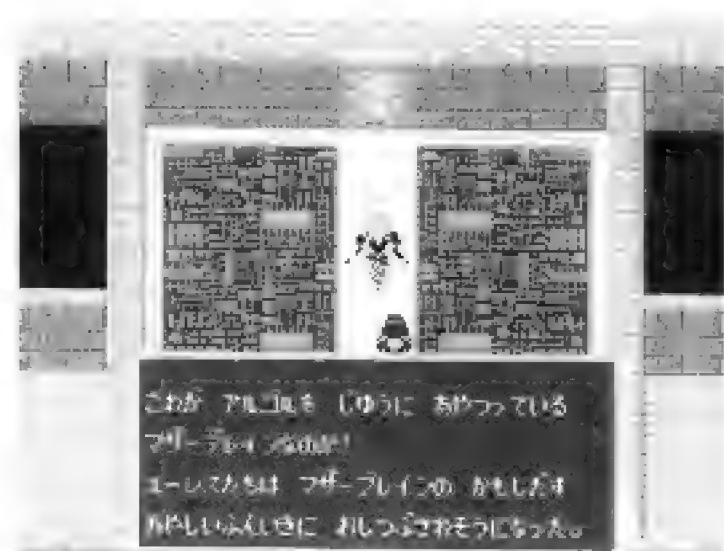 これが アルゴルを じゆうに あやつっている
マザーブレインなのか!
ユーシスたちは マザーブレインの かもしだす
あやしいふんいきに おしつぶされそうになった。